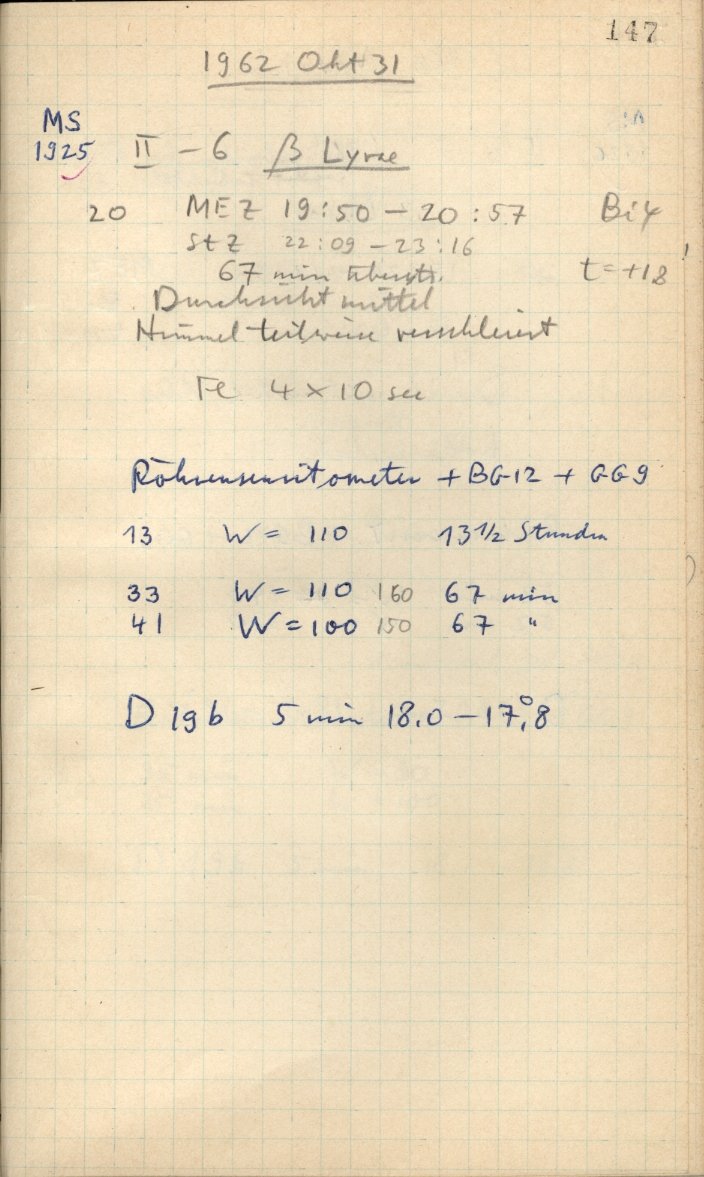 147
1962 Okt 31
MS
1925 II - 6 β Lyrae
20 MEZ 19:50 - 20:57 Bi4
StZ 22:09 - 23:16
67 min t=+18
Durchsicht mittel
Himmel teilweise verschleiert
Fe 4 × 10 sec
Röhrensensitometer + BG12 + GG9
13 W = 110 13 1/2 Stunden
33 W = 110 160 67 min
41 W = 100 150 67 "
D 19b 5 min 18.0 - 17.°8